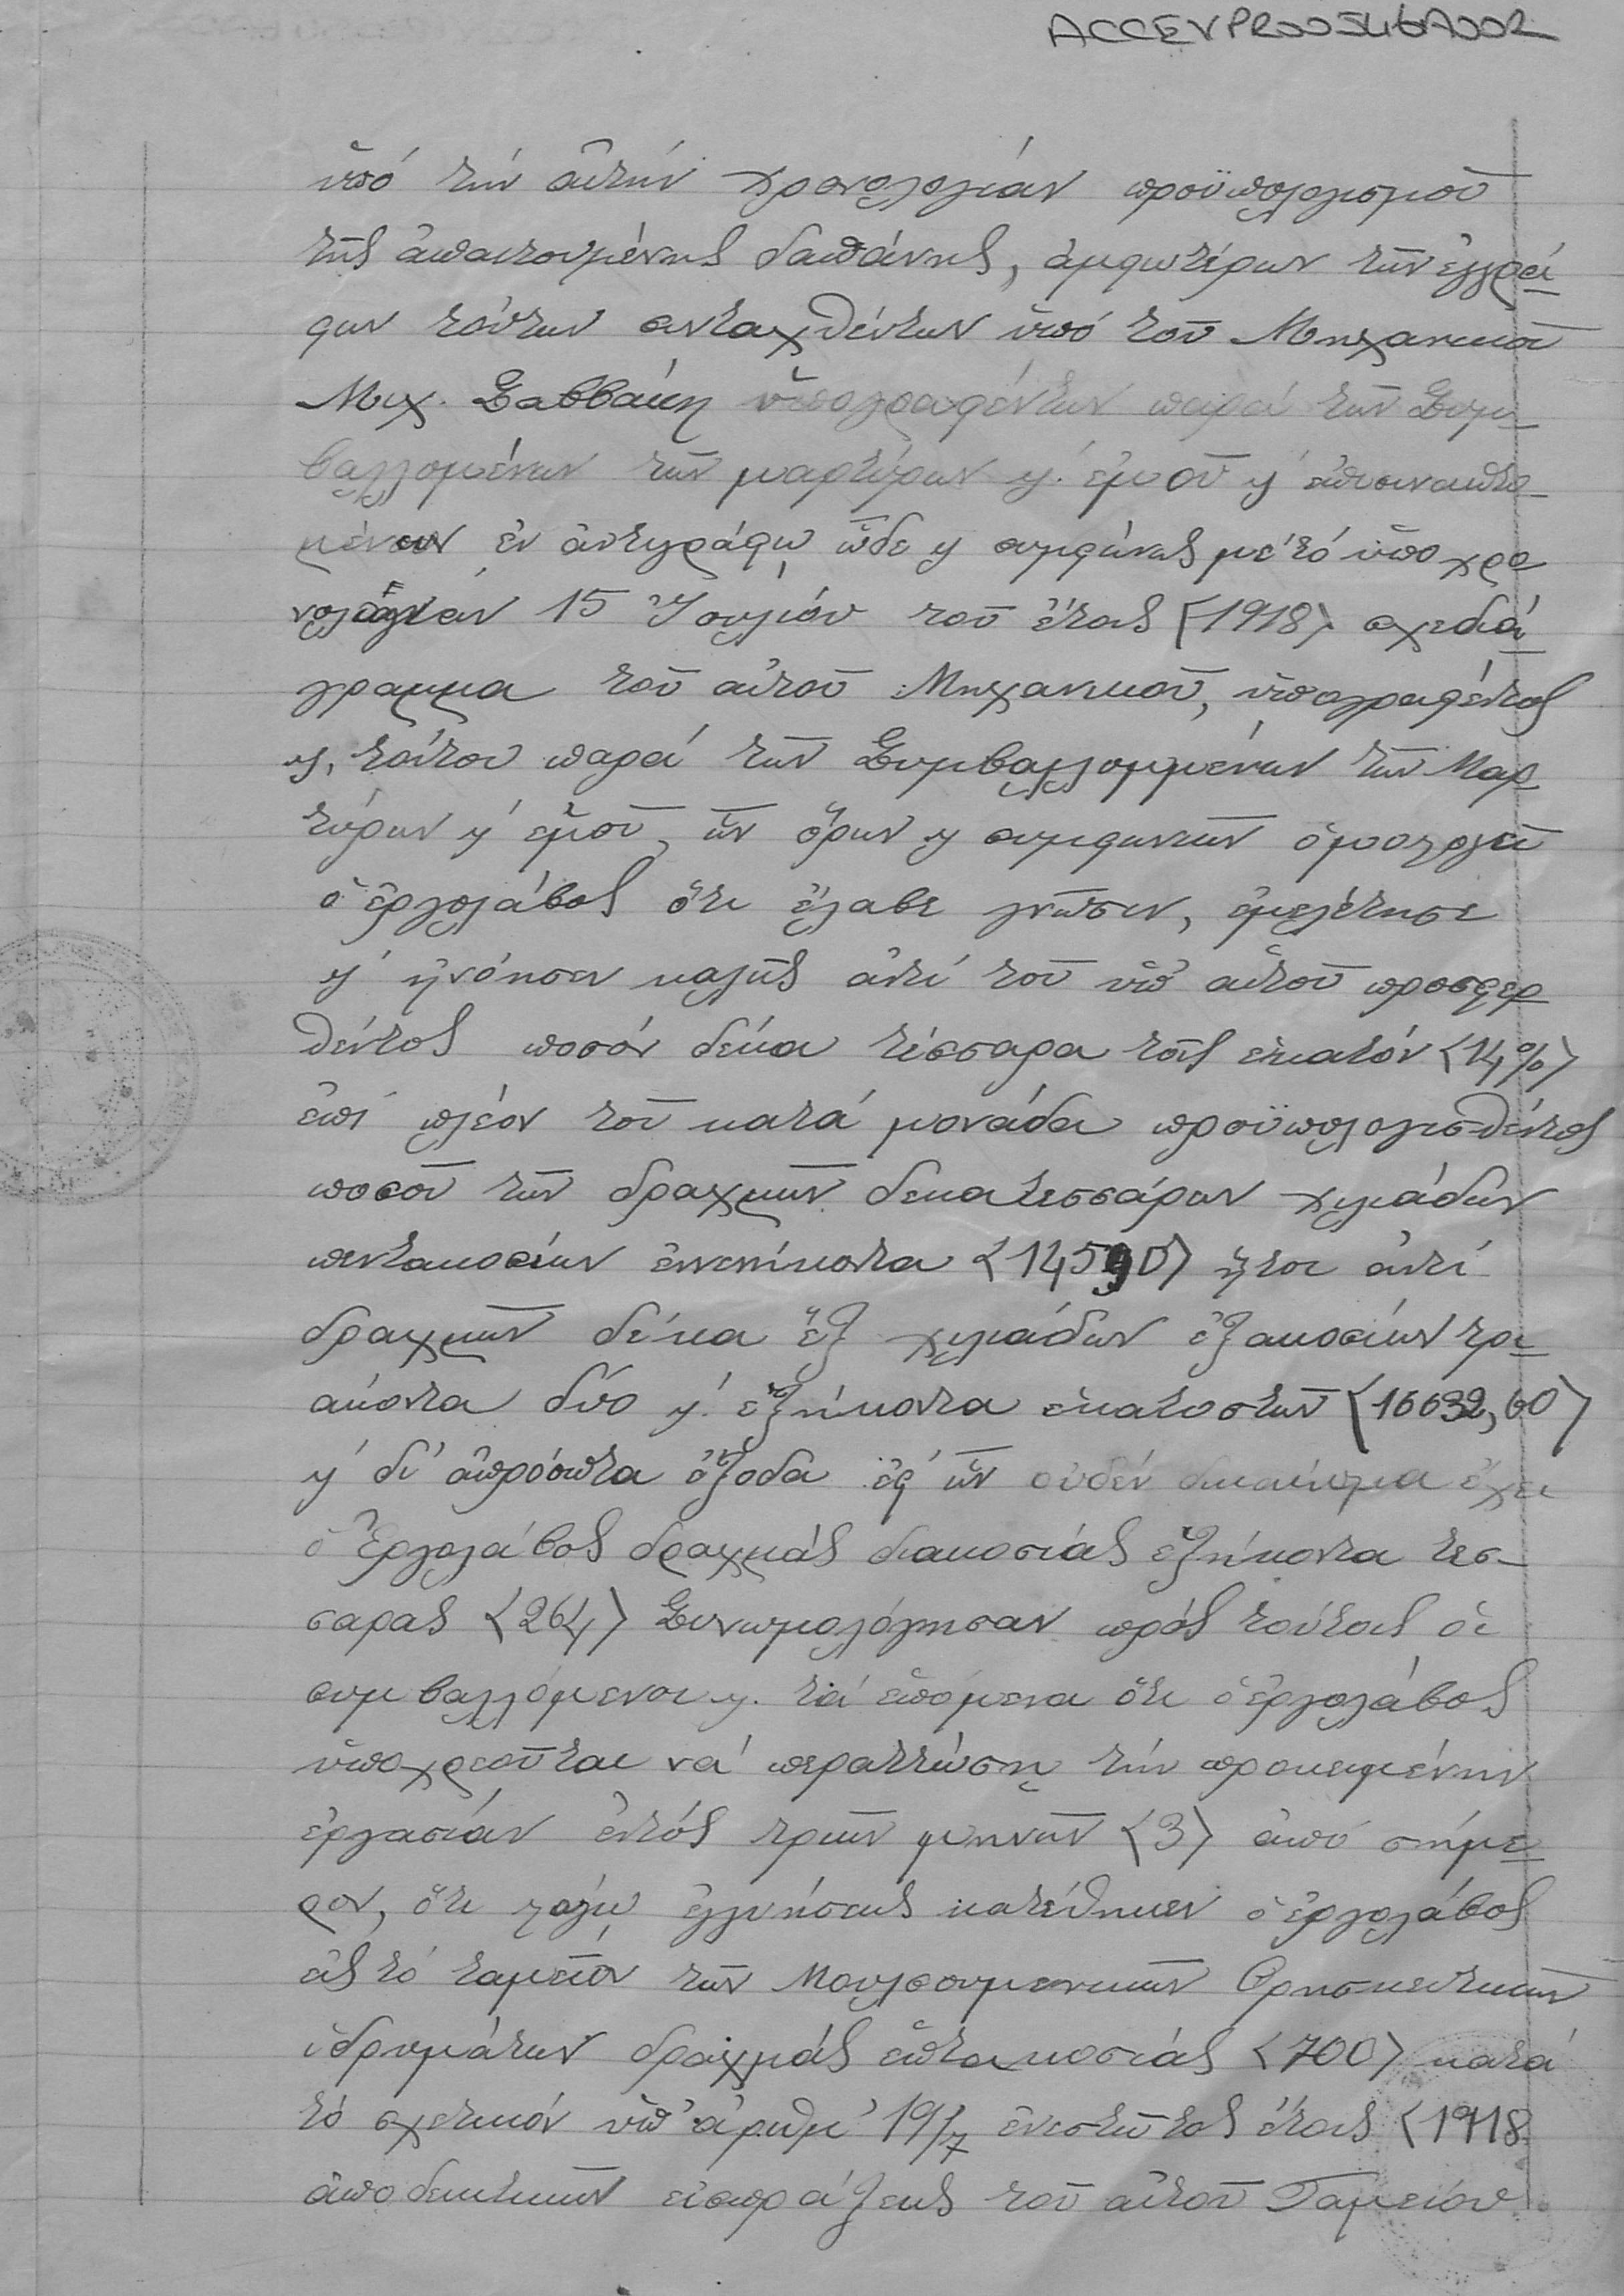 ACCEVPR005416A002
ὑπό τήν αὐτήν χρονολογίαν προϋπολογισμοῦ
τῆς ἀπαιτουμένης δαπάνης, ἀμφωτέρων τῶν ἐγγρά-
φων τούτων συνταχθέντων ὑπό τοῦ Μηχανικοῦ
Μιχ. Σαββάκη ὑπογραφέντων παρά τῶν Συμ-
βαλλομένων τῶν μαρτύρων ϗ ἐμοῦ ϗ ἐπισυναπτο-
μένων ἐν ἀντιγράφῳ ὧδε ϗ συμφώνως μέ τό ὑπό χρο-
νολογίαν 15 Ἰουλίου τοῦ ἔτους (1918) σχεδιά-
γραμμα τοῦ αὐτοῦ Μηχανικοῦ, ὑπογραφέντος
ϗ, τούτου παρά τῶν Συμβαλλομμένων τῶν Μαρ-
τύρων ϗ ἐμοῦ, ὧν ὅρων ϗ συμφωνιῶν ὁμολογεῖ
ὁ ἐργολάβος ὅτι ἔλαβε γνῶσιν, ἐμελέτησε
ϗ ἠνόησεν καλῶς ἀντί τοῦ ὑπ' αὐτοῦ προσφερ-
θέντος ποσόν δέκα τέσσαρα τοῖς ἑκατόν (14%)
ἐπί πλέον τοῦ κατά μονάδα προϋπολογισθέντος
ποσοῦ τῶν δραχμῶν δεκατεσσάρων χιλιάδων
πεντακοσίων ἐννενήκοντα (14590) ἤτοι ἀντί
δραχμῶν δέκα ἕξ χιλιάδων ἑξακοσίων τρι-
ακόντα δύο ϗ ἑξήκοντα ἑκατοστῶν (16632,60)
ϗ δι' ἀπρόοπτα ἔξοδα ἐφ' ὧν οὐδέν δικαίωμα ἔχει
ὁ Ἐργολάβος δραχμάς διακοσίας ἑξήκοντα τεσ-
σαρας (264) Συνωμολόγησαν πρός τούτοις οἱ
συμβαλλόμενοι ϗ τά ἑπόμενα ὅτι ὁ ἐργολάβος
ὑποχρεοῦται νά περαττώσῃ τήν προκειμένην
ἐργασίαν ἐντός τριῶν μηνῶν (3) ἀπό σήμε-
ρον, ὅτι λόγῳ ἐγγυήσεως κατέθηκεν ὁ ἐργολάβος
εἰς τό ταμεῖον τῶν Μουλσουμανικῶν Θρησκευτικῶν
ἱδρυμάτων δραχμάς ἑπτακοσίας (700) κατά
τό σχετικόν ὑπ' ἀριθμ' 19/7 ἐνεστῶτος ἔτους (1918
ἀποδεικτικῶν εἰσπράξεως τοῦ αὐτοῦ Ταμείου